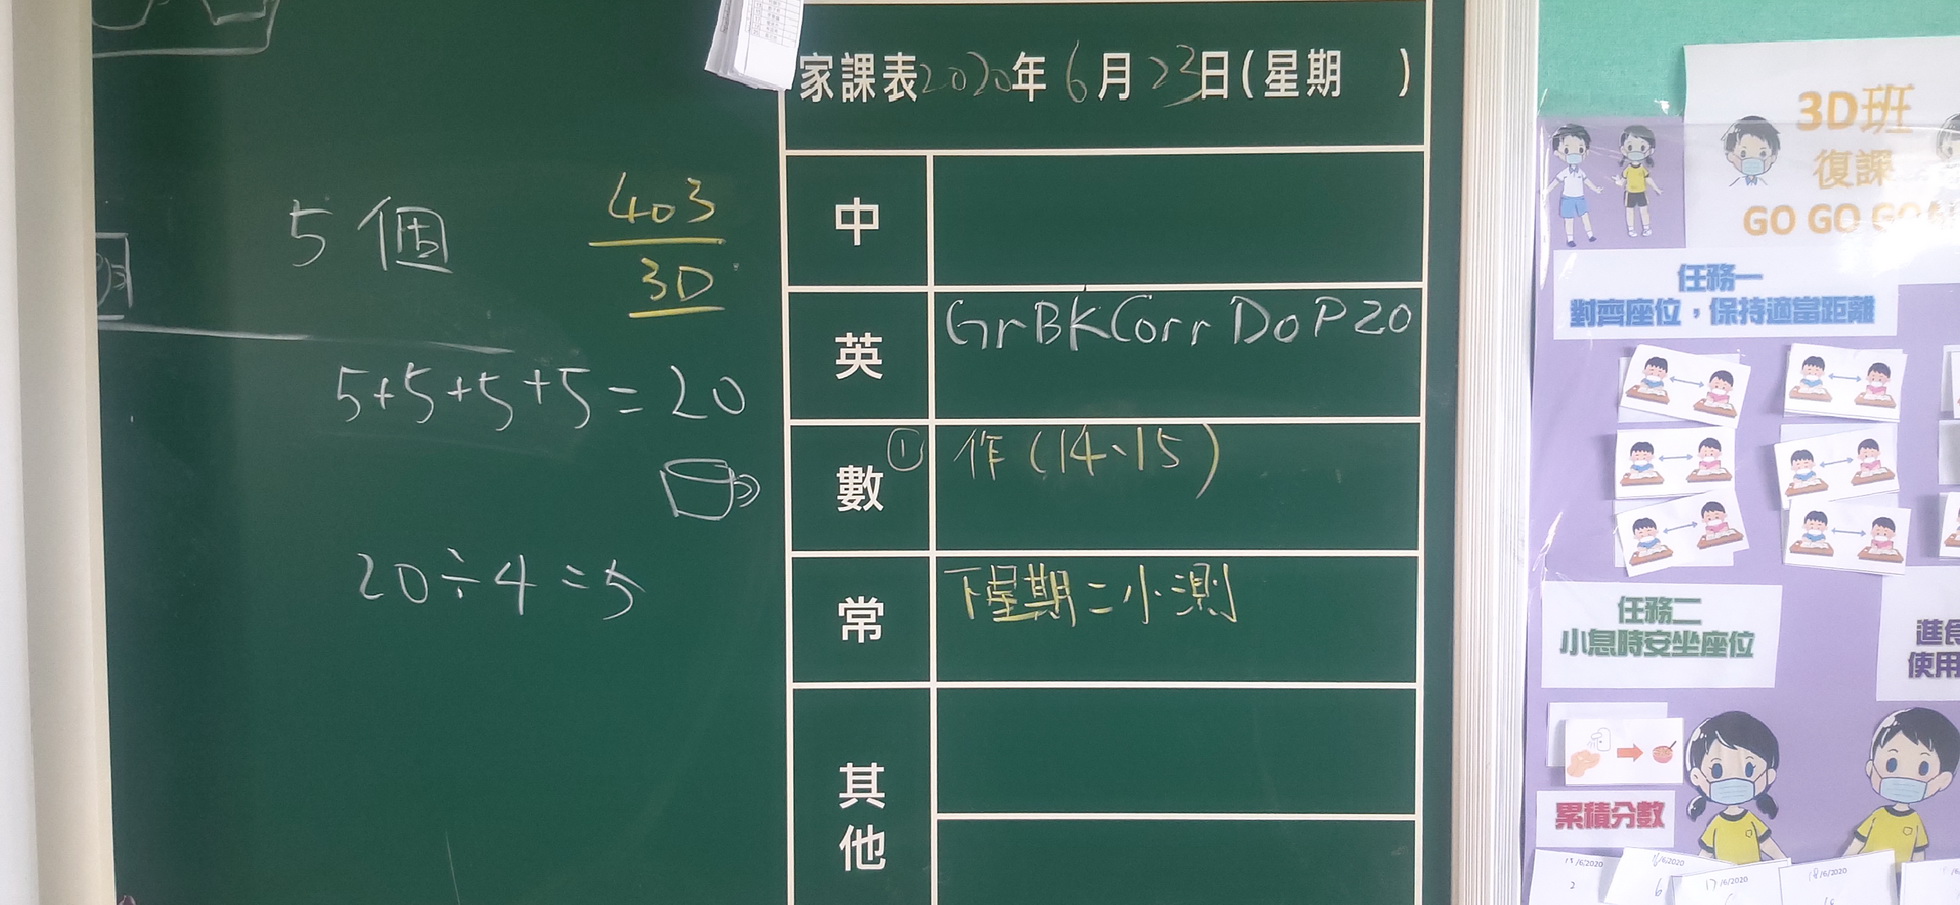 5個
403
3D
5+5+5+5=20
20÷4=5
家課表2020年6月23日(星期　)
中
英 GrBKCorr Do P20
數 ① 作(14、15)
常 下星期二小測
其他
3D班
復課
GO GO GO
任務一
對齊座位，保持適當距離
任務二
小息時安坐座位
進食
使用
累積分數
17/6/2020
18/6/2020
2
6